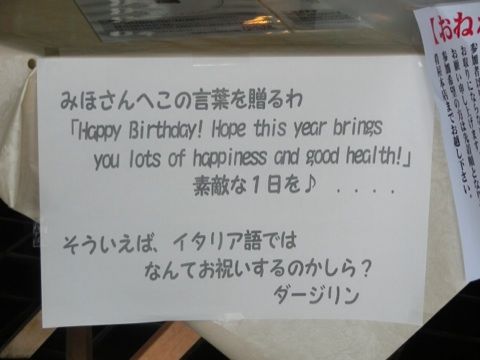 みほさんへこの言葉を贈るわ
「Happy Birthday! Hope this year brings
you lots of happiness and good health!」
素敵な１日を♪ ....
そういえば、イタリア語では
なんてお祝いするのかしら？
ダージリン
【おね